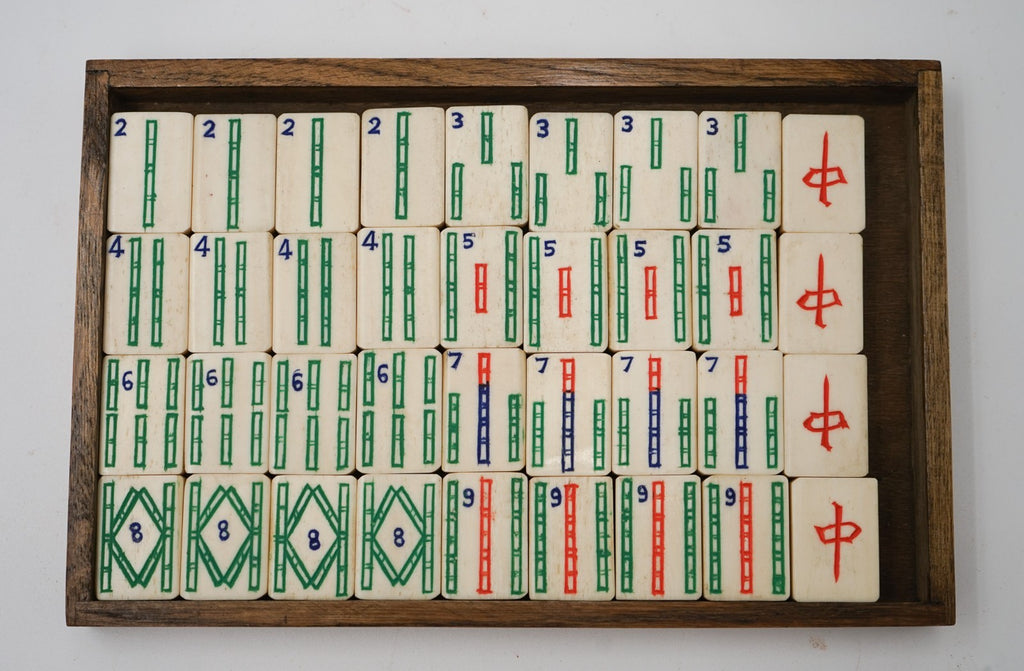 2 2 2 2 3 3 3 3 中
4 4 4 4 5 5 5 5 中
6 6 6 6 7 7 7 7 中
8 8 8 8 9 9 9 9 中